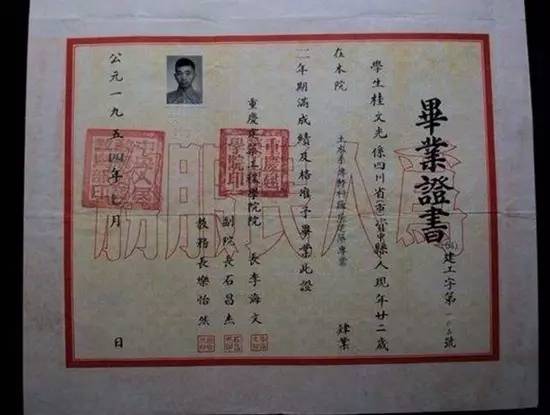 畢業證書
建工字第一〇五號
學生桂文光係四川省(市)資中縣人現年廿二歲
在本院 土木系 專業 肄業
二年期滿成績及格准予畢業此證
重慶建築工程學院院長李海文
副院長石昌杰
教務長欒怡然
公元一九五四年 月 日
為人民服務
重慶建
學院印